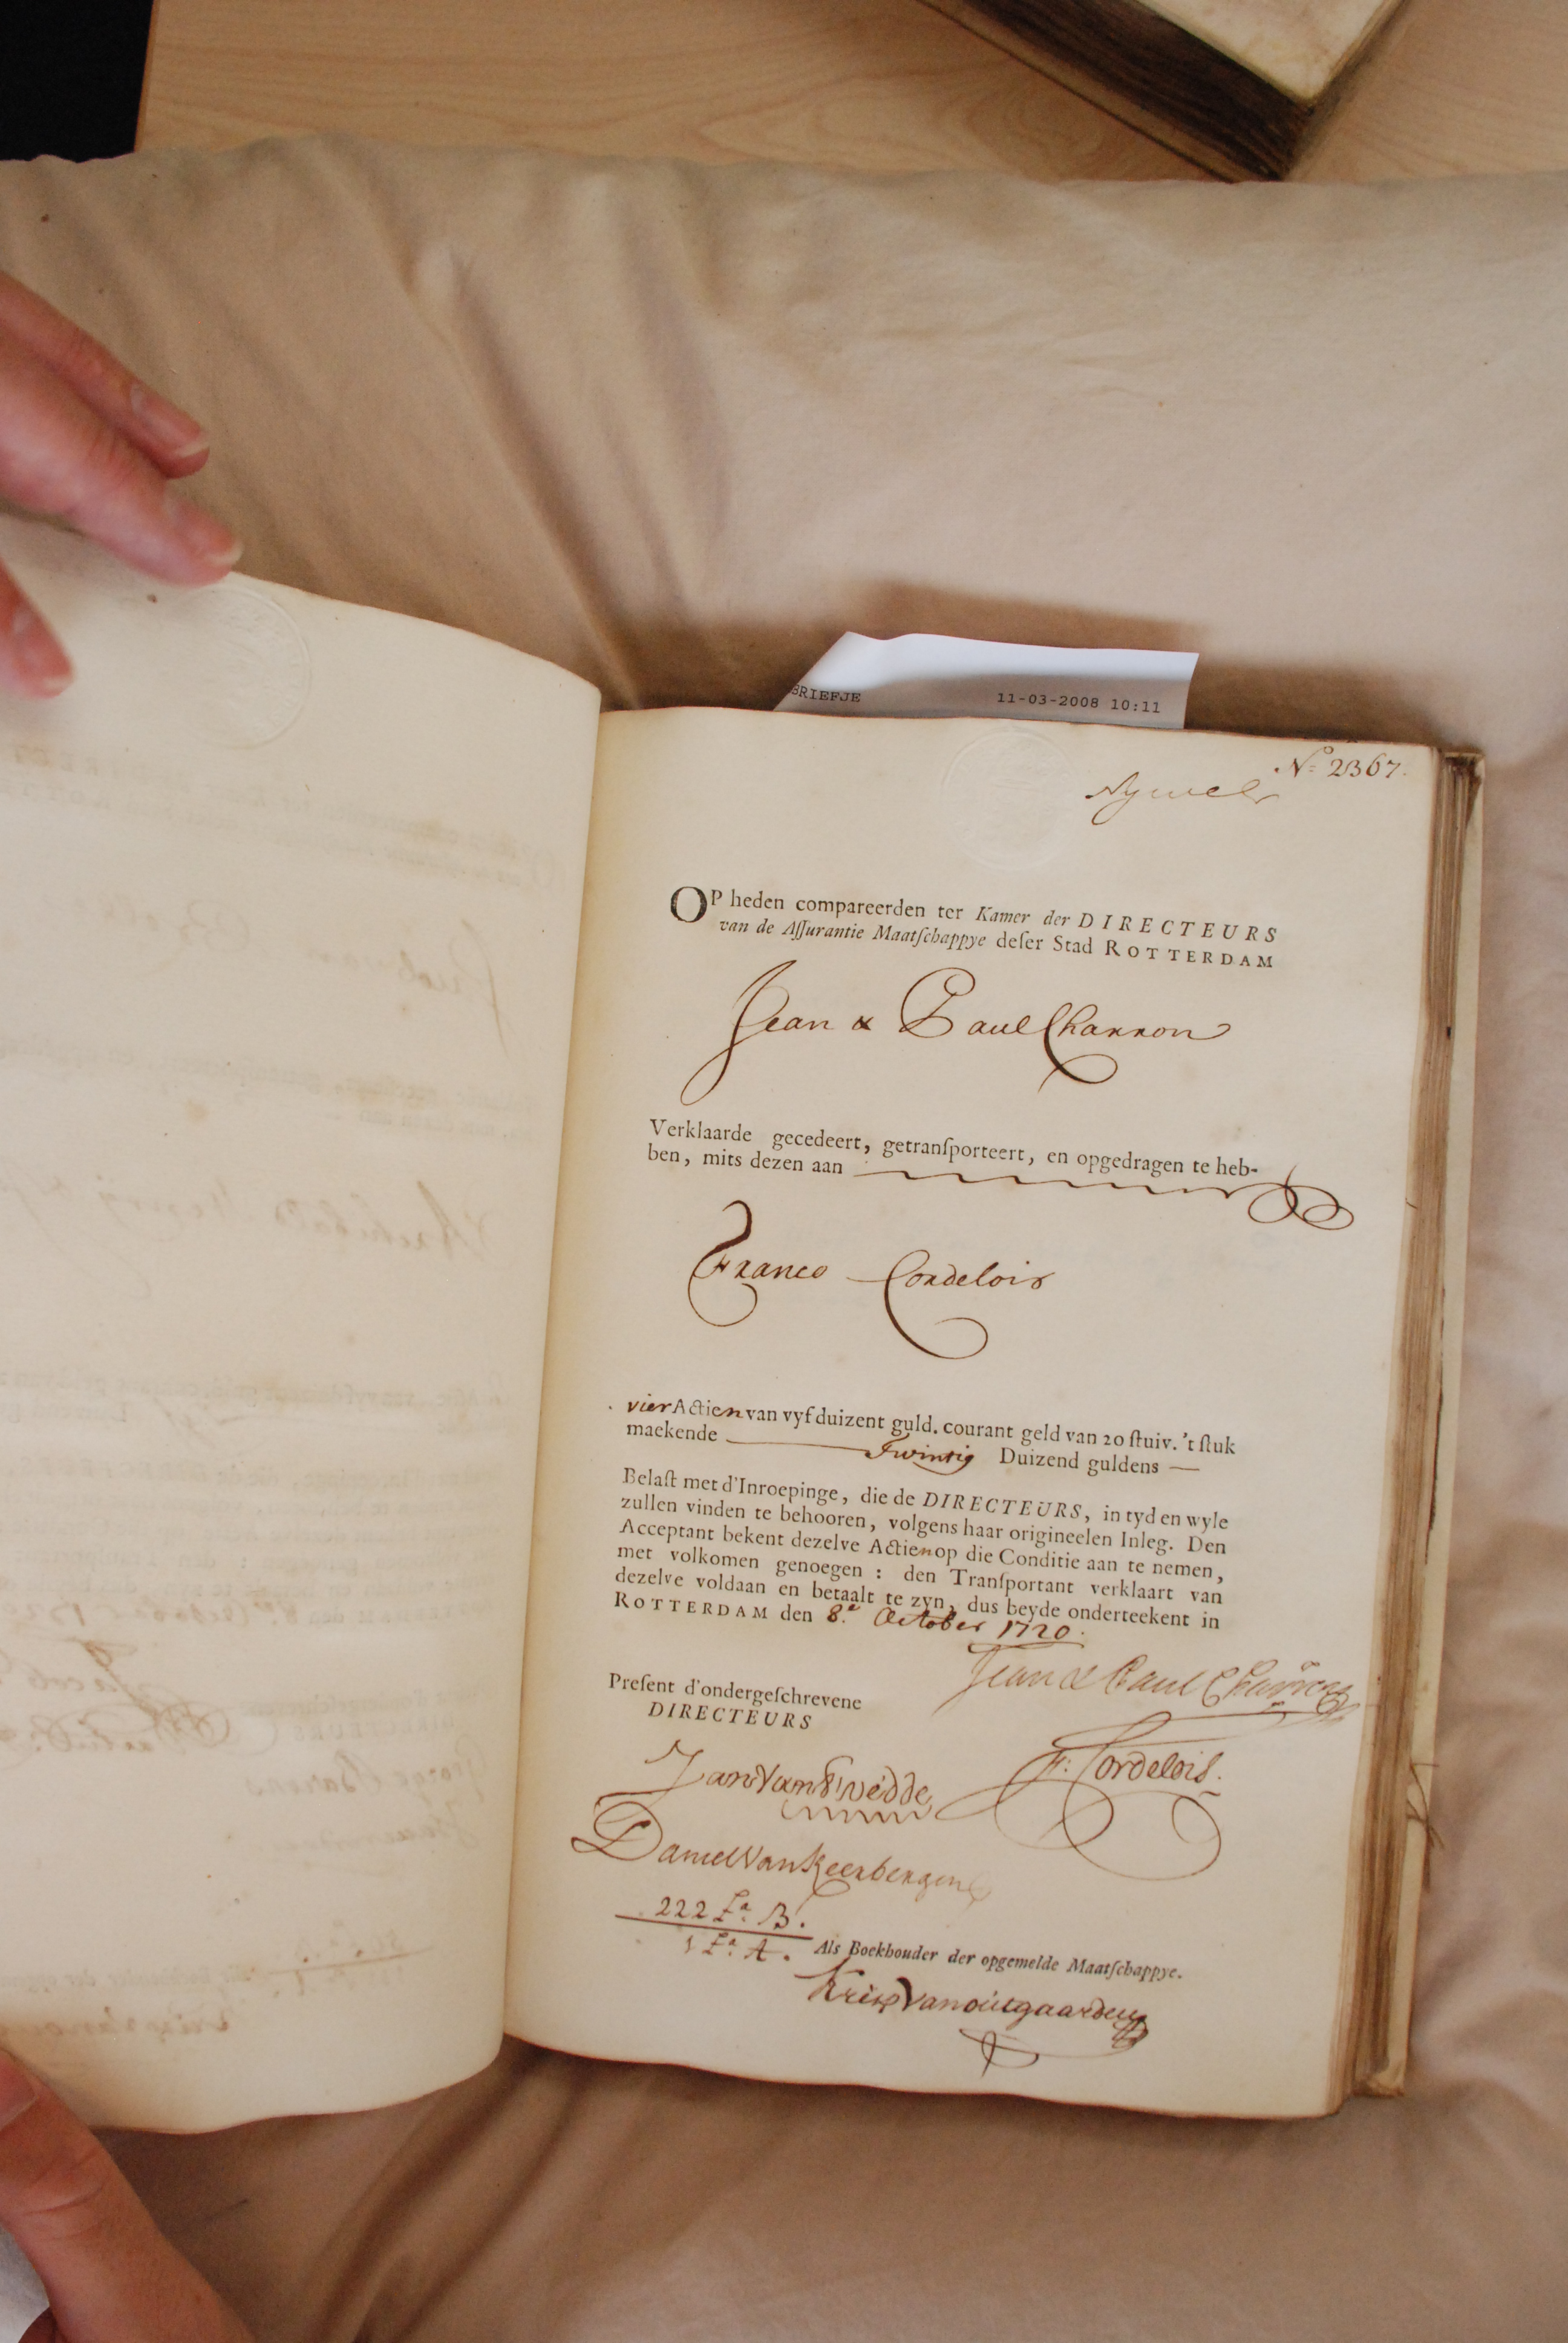 BRIEFJE 11-03-2008 10:11
No 2367.
OP heden compareerden ter Kamer der DIRECTEURS
van de Aſſurantie Maatſchappye deſer Stad ROTTERDAM
Jean & Paul Charron
Verklaarde gecedeert, getranſporteert, en opgedragen te heb-
ben, mits dezen aan
Franco Cordelois
vier Actien van vyf duizent guld. courant geld van 20 ſtuiv. 't ſtuk
maekende Twintig Duizend guldens
Belaſt met d'Inroepinge, die de DIRECTEURS, in tyd en wyle
zullen vinden te behooren, volgens haar origineelen Inleg. Den
Acceptant bekent dezelve Actien op die Conditie aan te nemen,
met volkomen genoegen : den Tranſportant verklaart van
dezelve voldaan en betaalt te zyn, dus beyde onderteekent in
ROTTERDAM den 8.e October 1720.
Jean & Paul Charron
Preſent d'ondergeſchrevene
DIRECTEURS
F: Cordelois.
Jan Van
Daniel Van Keerbergen
222 La B.
1 La A.
Als Boekhouder der opgemelde Maatſchappye.